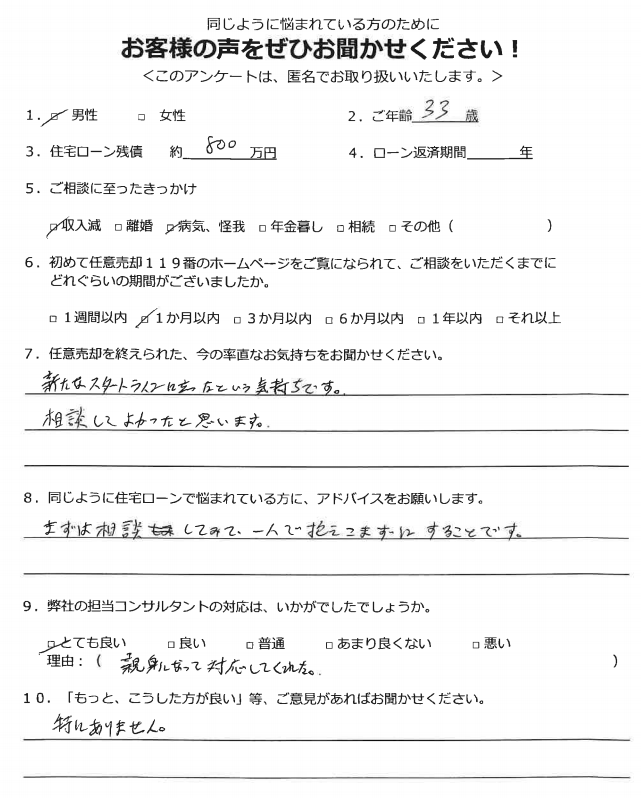 同じように悩まれている方のために
お客様の声をぜひお聞かせください！
＜このアンケートは、匿名でお取り扱いいたします。＞
１．☑ 男性 □ 女性 ２．ご年齢 33 歳
３．住宅ローン残債 約 800 万円 ４．ローン返済期間 年
５．ご相談に至ったきっかけ
☑収入減 □離婚 ☑病気、怪我 □年金暮し □相続 □その他（ ）
６．初めて任意売却１１９番のホームページをご覧になられて、ご相談をいただくまでに
どれぐらいの期間がございましたか。
□１週間以内 ☑１か月以内 □３か月以内 □６か月以内 □１年以内 □それ以上
７．任意売却を終えられた、今の率直なお気持ちをお聞かせください。
新たなスタートラインに立ったという気持ちです。
相談してよかったと思います。
８．同じように住宅ローンで悩まれている方に、アドバイスをお願いします。
まずは相談してみて、一人で抱えこまずにすることです。
９．弊社の担当コンサルタントの対応は、いかがでしたでしょうか。
☑とても良い □良い □普通 □あまり良くない □悪い
理由：（ 親身になって対応してくれた。 ）
１０．「もっと、こうした方が良い」等、ご意見があればお聞かせください。
特にありません。